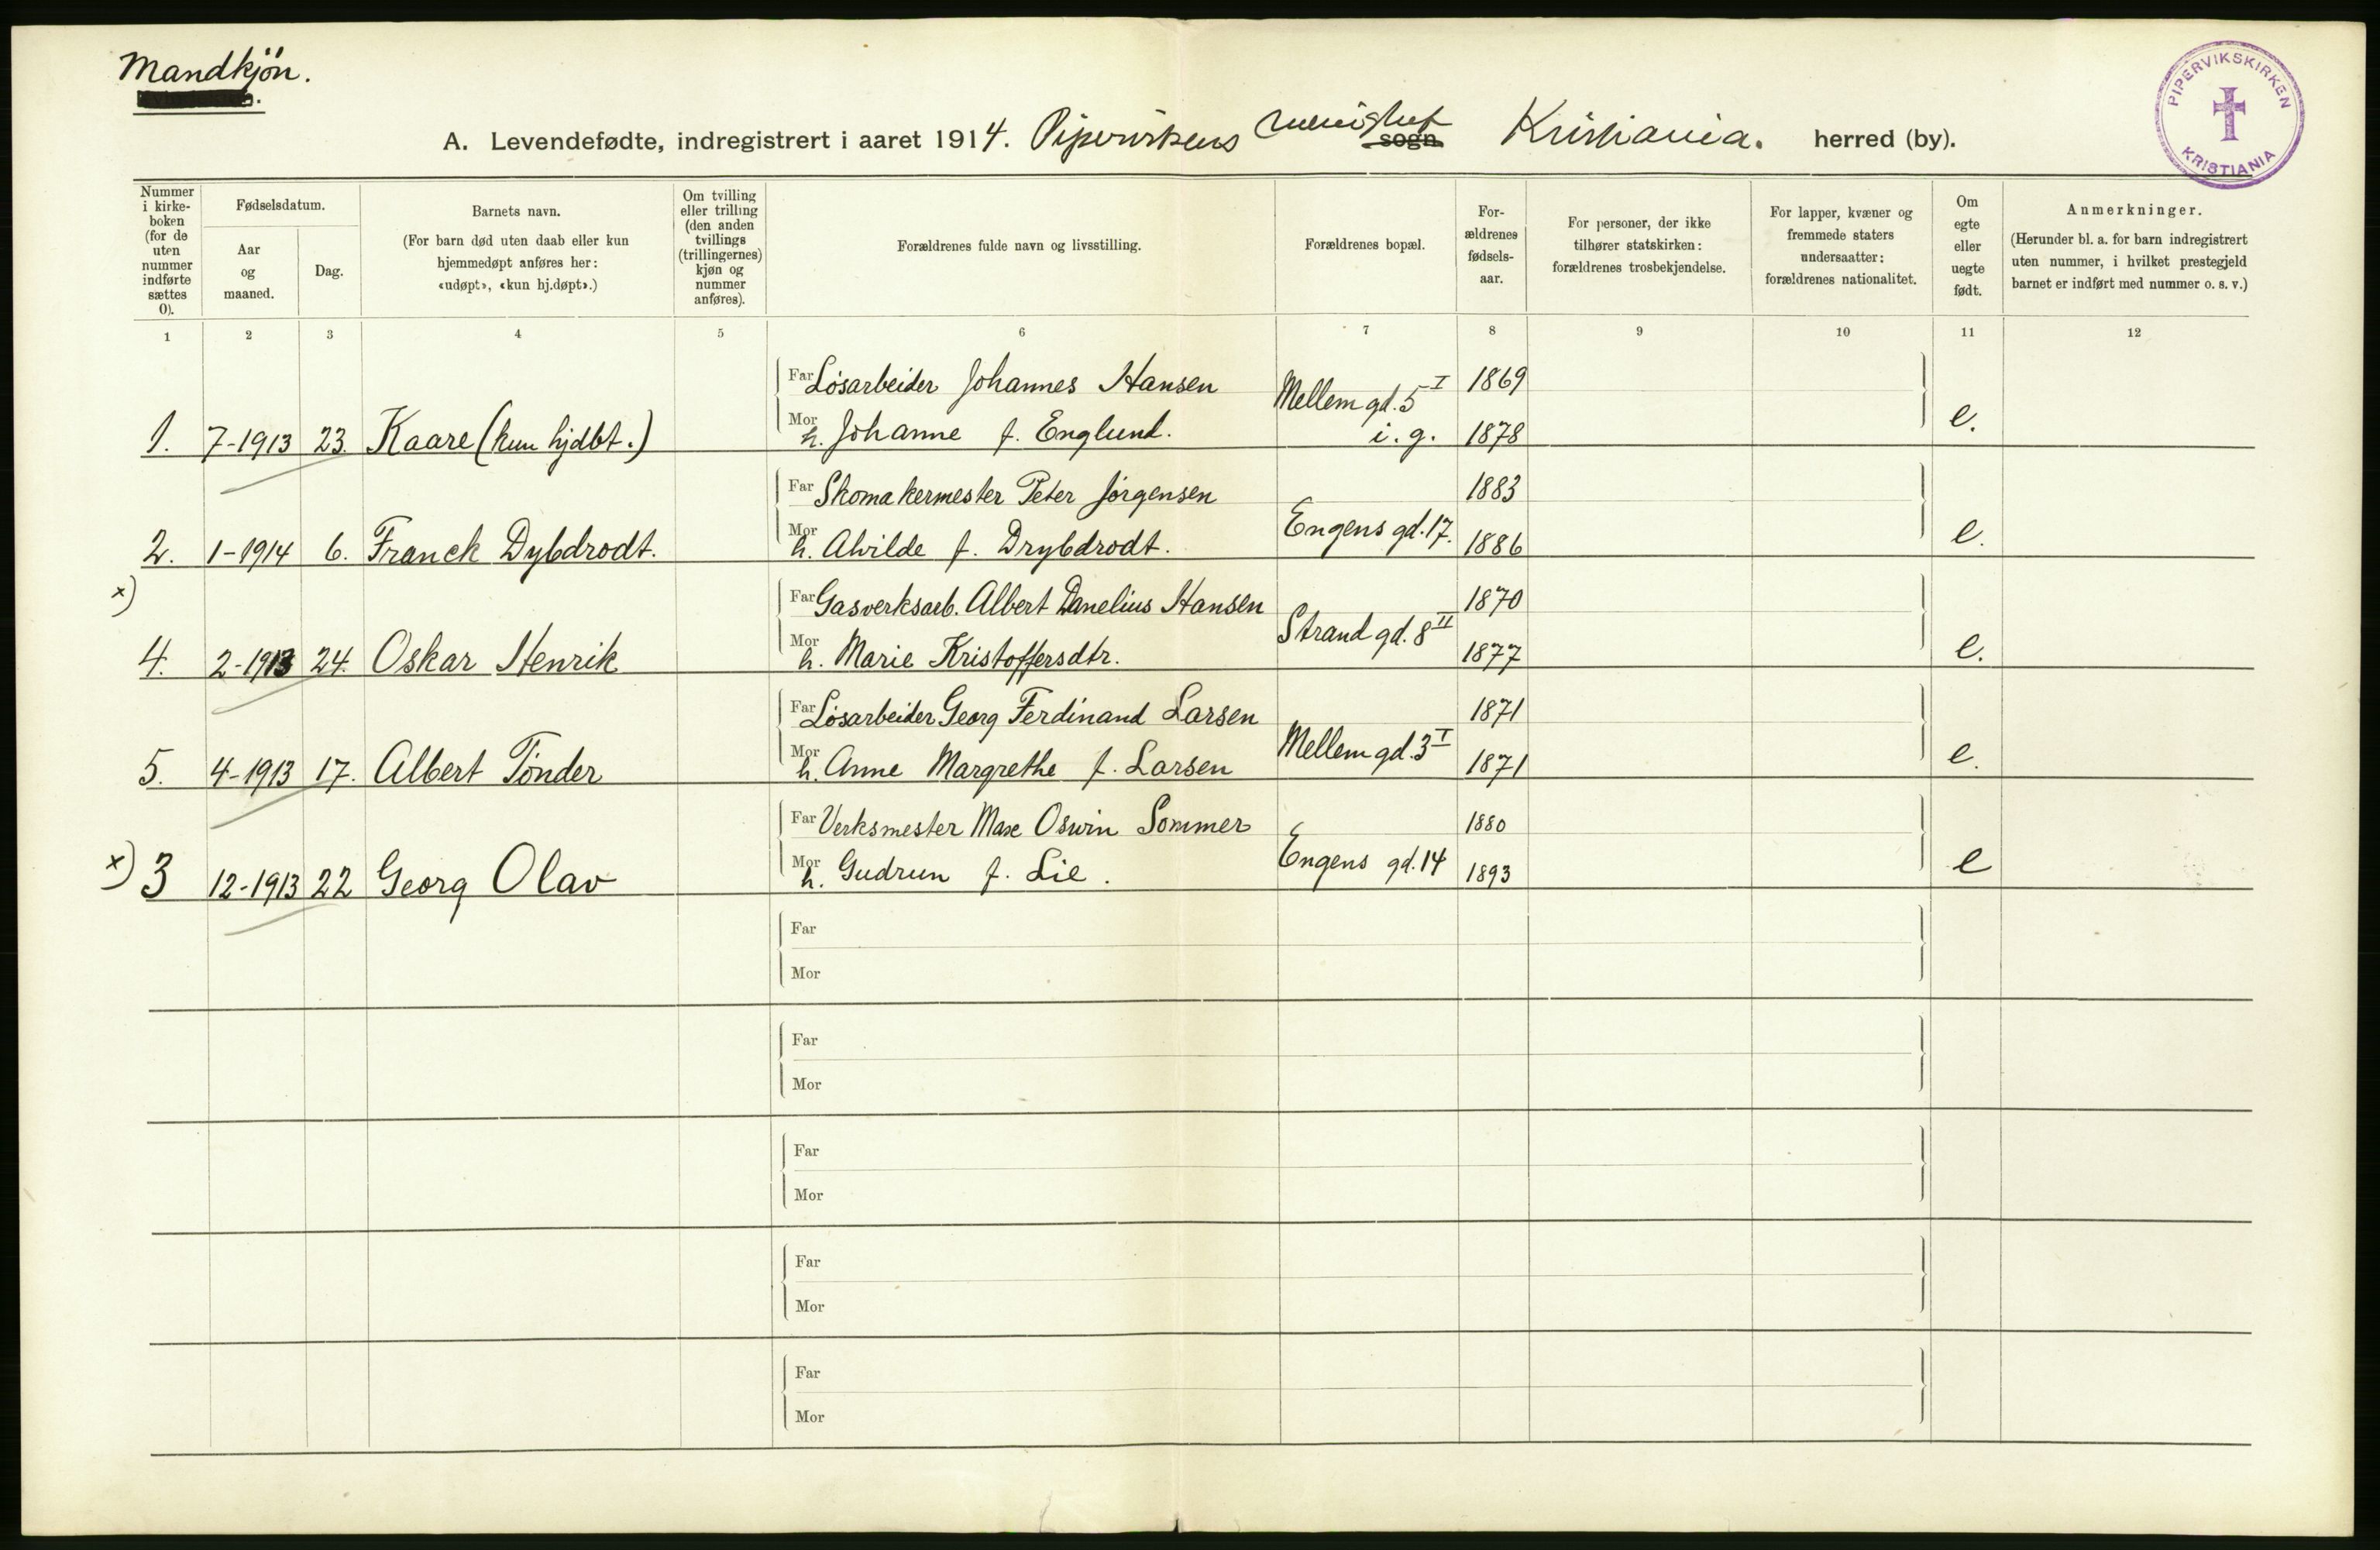 Mandkjøn.
PIPERVIKSKIRKEN
KRISTIANIA
A. Levendefødte, indregistrert i aaret 1914. Pipervikens menighet sogn Kristiania. herred (by).
Nummer i kirke-boken (for de uten nummer indførte sættes 0).
Fødselsdatum.
Aar og maaned.
Dag.
Barnets navn.
(For barn død uten daab eller kun hjemmedøpt anføres her: «udøpt», «kun hj.døpt».)
Om tvilling eller trilling (den anden tvillings (trillingernes) kjøn og nummer anføres).
Forældrenes fulde navn og livsstilling.
Forældrenes bopæl.
For-ældrenes fødsels-aar.
For personer, der ikke tilhører statskirken: forældrenes trosbekjendelse.
For lapper, kvæner og fremmede staters undersaatter: forældrenes nationalitet.
Om egte eller uegte født.
Anmerkninger.
(Herunder bl. a. for barn indregistrert uten nummer, i hvilket prestegjeld barnet er indført med nummer o. s. v.)
1 2 3 4 5 6 7 8 9 10 11 12
Far Løsarbeider Johannes Hansen Mellemgd. 5 I 1869
1. 7-1913 23. Kaare (kun hjdbt.) Mor h. Johanne f. Englund. i. g. 1878 e.
Far Skomakermester Peter Jørgensen 1883
2. 1-1914 6. Franck Dybdrodt. Mor h. Alvilde f. Drybdrodt. Engens gd. 17. 1886 e.
x)
Far Gasverksarb. Albert Danelius Hansen 1870
4. 2-1913 24. Oskar Henrik Mor h. Marie Kristoffersdtr. Strandgd. 8 II 1877 e.
Far Løsarbeider Georg Ferdinand Larsen 1871
5. 4-1913 17. Albert Tønder Mor h. Anne Margrethe f. Larsen Mellemgd. 3 I 1871 e.
Far Verksmester Max Oswin Sommer 1880
x) 3 12-1913 22 Georg Olav Mor h. Gudrun f. Lie. Engens gd. 14 1893 e
Far
Mor
Far
Mor
Far
Mor
Far
Mor
Far
Mor